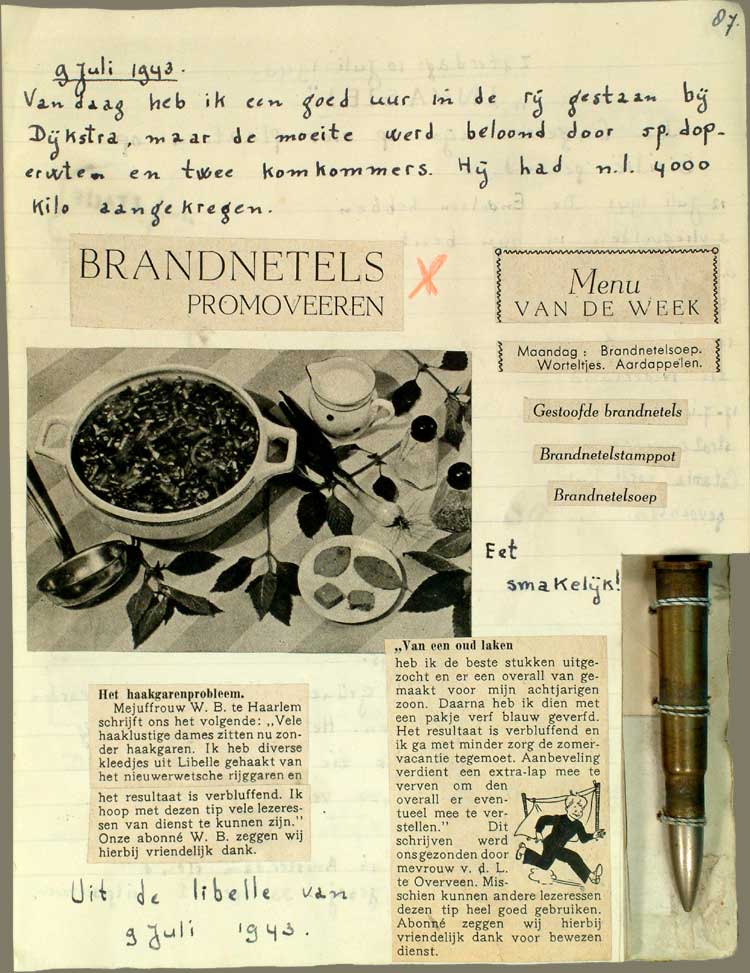 87.
9 Juli 1943.
Vandaag heb ik een goed uur in de rij gestaan bij
Dijkstra, maar de moeite werd beloond door sp. dop-
erwten en twee komkommers. Hij had n.l. 4000
kilo aangekregen.
BRANDNETELS
PROMOVEEREN
Menu
VAN DE WEEK
Maandag: Brandnetelsoep.
Worteltjes. Aardappelen.
Gestoofde brandnetels
Brandnetelstamppot
Brandnetelsoep
Eet
smakelijk!
Het haakgarenprobleem.
Mejuffrouw W. B. te Haarlem
schrijft ons het volgende: „Vele
haaklustige dames zitten nu zon-
der haakgaren. Ik heb diverse
kleedjes uit Libelle gehaakt van
het nieuwerwetsche rijggaren en
het resultaat is verbluffend. Ik
hoop met dezen tip vele lezeres-
sen van dienst te kunnen zijn."
Onze abonné W. B. zeggen wij
hierbij vriendelijk dank.
Uit de libelle van
9 Juli 1943.
„Van een oud laken
heb ik de beste stukken uitge-
zocht en er een overall van ge-
maakt voor mijn achtjarigen
zoon. Daarna heb ik dien met
een pakje verf blauw geverfd.
Het resultaat is verbluffend en
ik ga met minder zorg de zomer-
vacantie tegemoet. Aanbeveling
verdient een extra-lap mee te
verven om den
overall er even-
tueel mee te ver-
stellen." Dit
schrijven werd
ons gezonden door
mevrouw v. d. L.
te Overveen. Mis-
schien kunnen andere lezeressen
dezen tip heel goed gebruiken.
Abonné zeggen wij hierbij
vriendelijk dank voor bewezen
dienst.